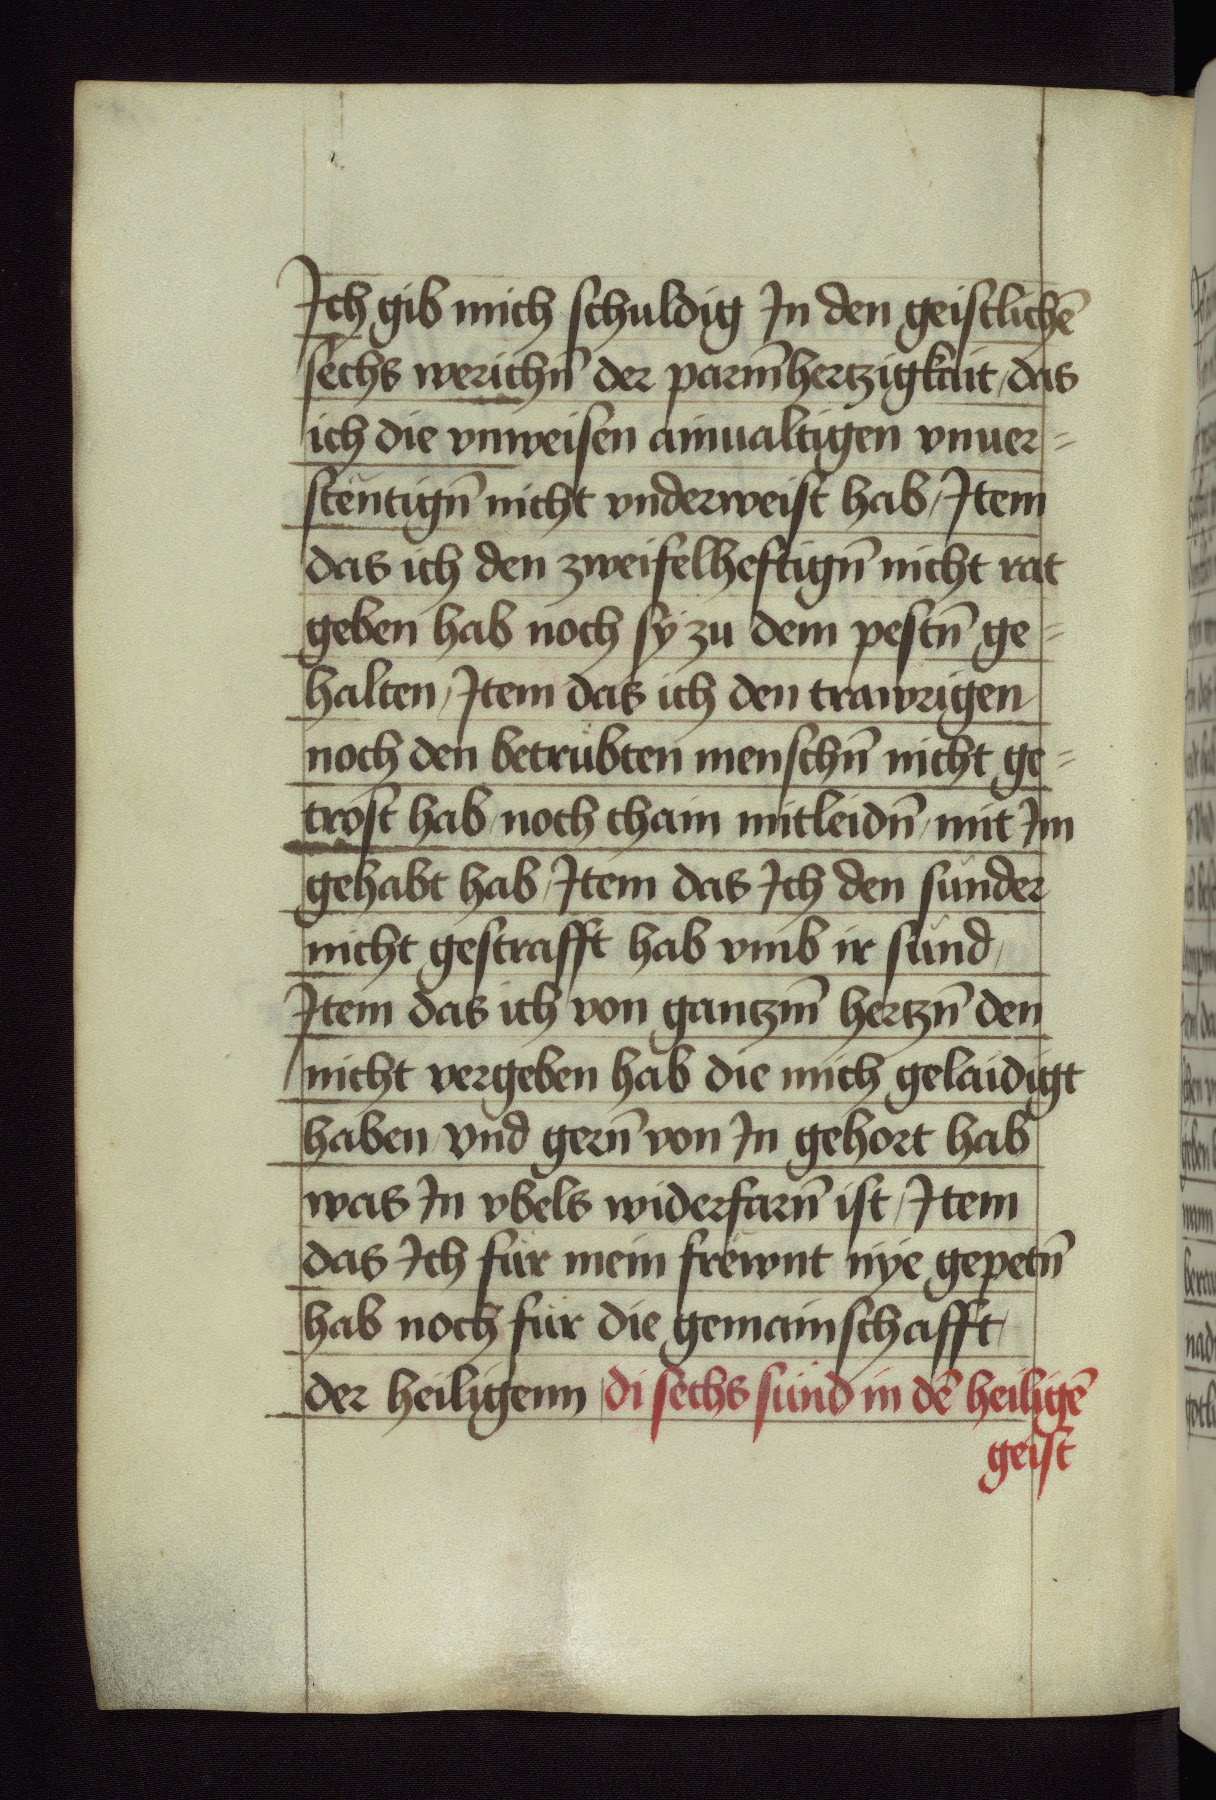 Ich gib mich schuldig In den geistlichē
sechs werichn̄ der parm̄hertzigkait / das
ich die vnweisen ainualtigen vnuer=
stentign̄ nicht vnderweist hab / Item
das ich den zweifelheftign̄ nicht rat
geben hab noch sÿ zu dem pestn̄ ge=
halten / Item das ich den trawrigen
noch den betrübten menschn̄ nicht ge=
trost hab / noch chain mitleidn̄ / mit Im
gehabt hab / Item das Ich den sünder
nicht gestrafft hab vmb ir sünd /
Item das ich von gantzm̄ hertzn̄ den
nicht vergeben hab die mich gelaidigt
haben / vnd gern̄ von In gehort hab
was In vbels widerfarn̄ ist / Item
das Ich für mein frewnt nÿe gepetn̄
hab noch für die gemainschafft /
der heiligenn di sechs sünd in dē heiligē
geist